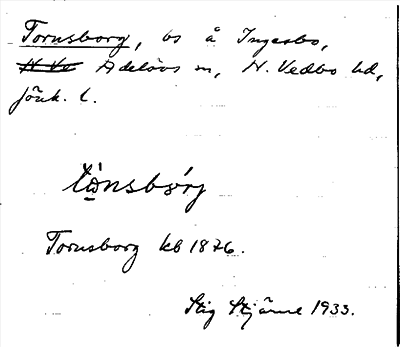 Tornsborg, bs å Ingesbo,
N. Ve Adelövs sn, N. Vedbo hd,
Jönk. l.
Tornsborg kb 1876.
Stig Stjärne 1933.